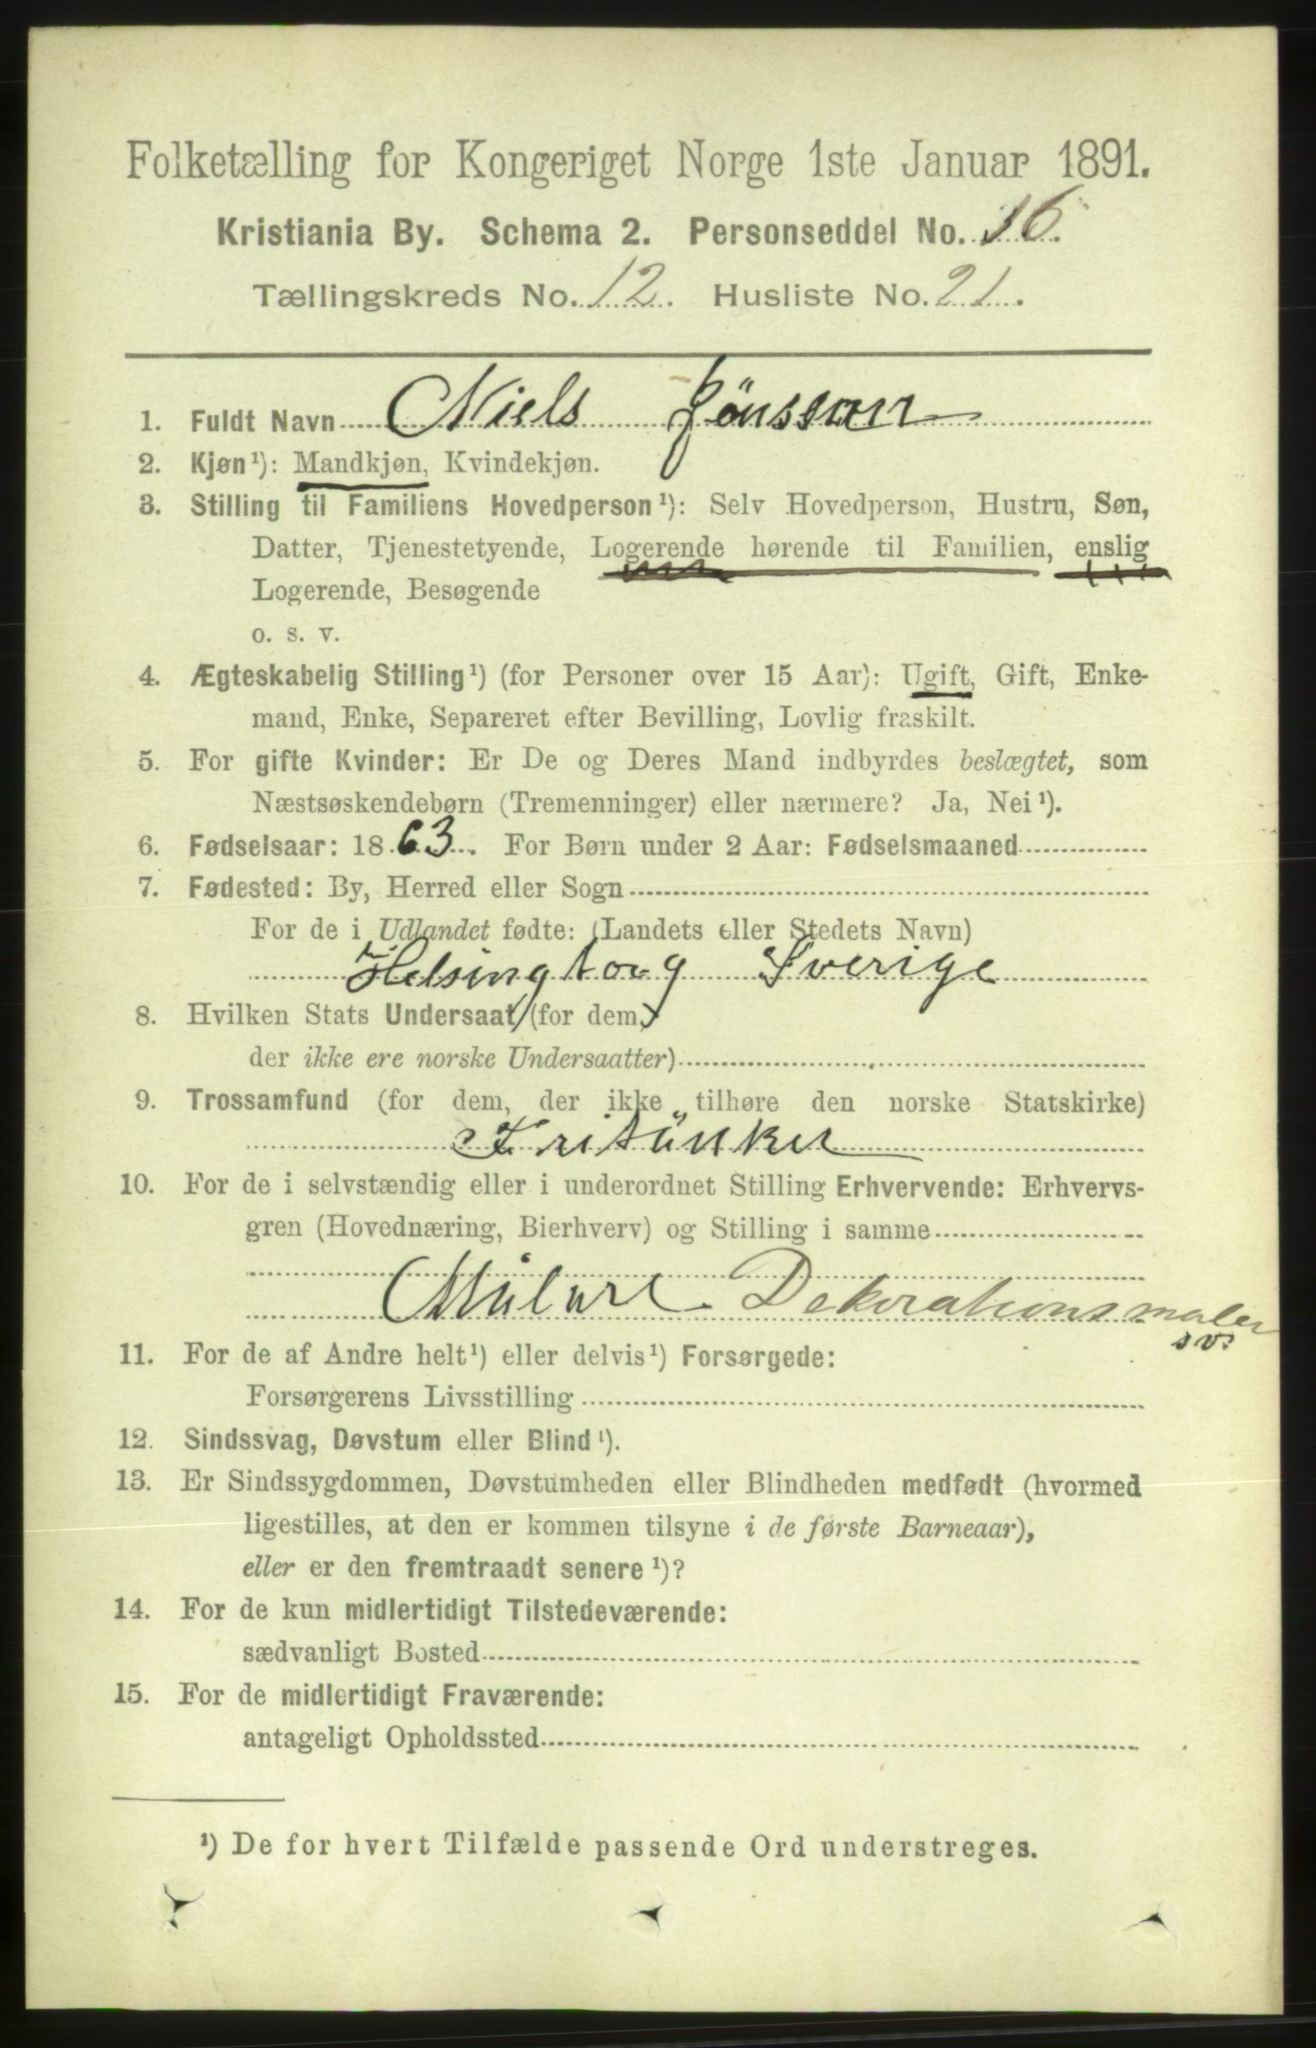 Folketælling for Kongeriget Norge 1ste Januar 1891.
Kristiania By. Schema 2. Personseddel No. 16.
Tællingskreds No. 12. Husliste No. 21.
1. Fuldt Navn Niels Jönsson
2. Kjøn¹): Mandkjøn, Kvindekjøn.
3. Stilling til Familiens Hovedperson¹): Selv Hovedperson, Hustru, Søn,
Datter, Tjenestetyende, Logerende hørende til Familien, enslig
Logerende, Besøgende
o. s. v.
4. Ægteskabelig Stilling¹) (for Personer over 15 Aar): Ugift, Gift, Enke-
mand, Enke, Separeret efter Bevilling, Lovlig fraskilt.
5. For gifte Kvinder: Er De og Deres Mand indbyrdes beslægtet, som
Næstsøskendebørn (Tremenninger) eller nærmere? Ja, Nei¹).
6. Fødselsaar: 1863. For Børn under 2 Aar: Fødselsmaaned
7. Fødested: By, Herred eller Sogn
For de i Udlandet fødte: (Landets eller Stedets Navn)
Helsingborg Sverige
8. Hvilken Stats Undersaat (for dem,
der ikke ere norske Undersaatter)
9. Trossamfund (for dem, der ikke tilhøre den norske Statskirke)
Fritünker
10. For de i selvstændig eller i underordnet Stilling Erhvervende: Erhvervs-
gren (Hovednæring, Bierhverv) og Stilling i samme
Målare Dekorationsmaler
sv:
11. For de af Andre helt¹) eller delvis¹) Forsørgede:
Forsørgerens Livsstilling
12. Sindssvag, Døvstum eller Blind¹).
13. Er Sindssygdommen, Døvstumheden eller Blindheden medfødt (hvormed
ligestilles, at den er kommen tilsyne i de første Barneaar),
eller er den fremtraadt senere¹)?
14. For de kun midlertidigt Tilstedeværende:
sædvanligt Bosted
15. For de midlertidigt Fraværende:
antageligt Opholdssted
¹) De for hvert Tilfælde passende Ord understreges.